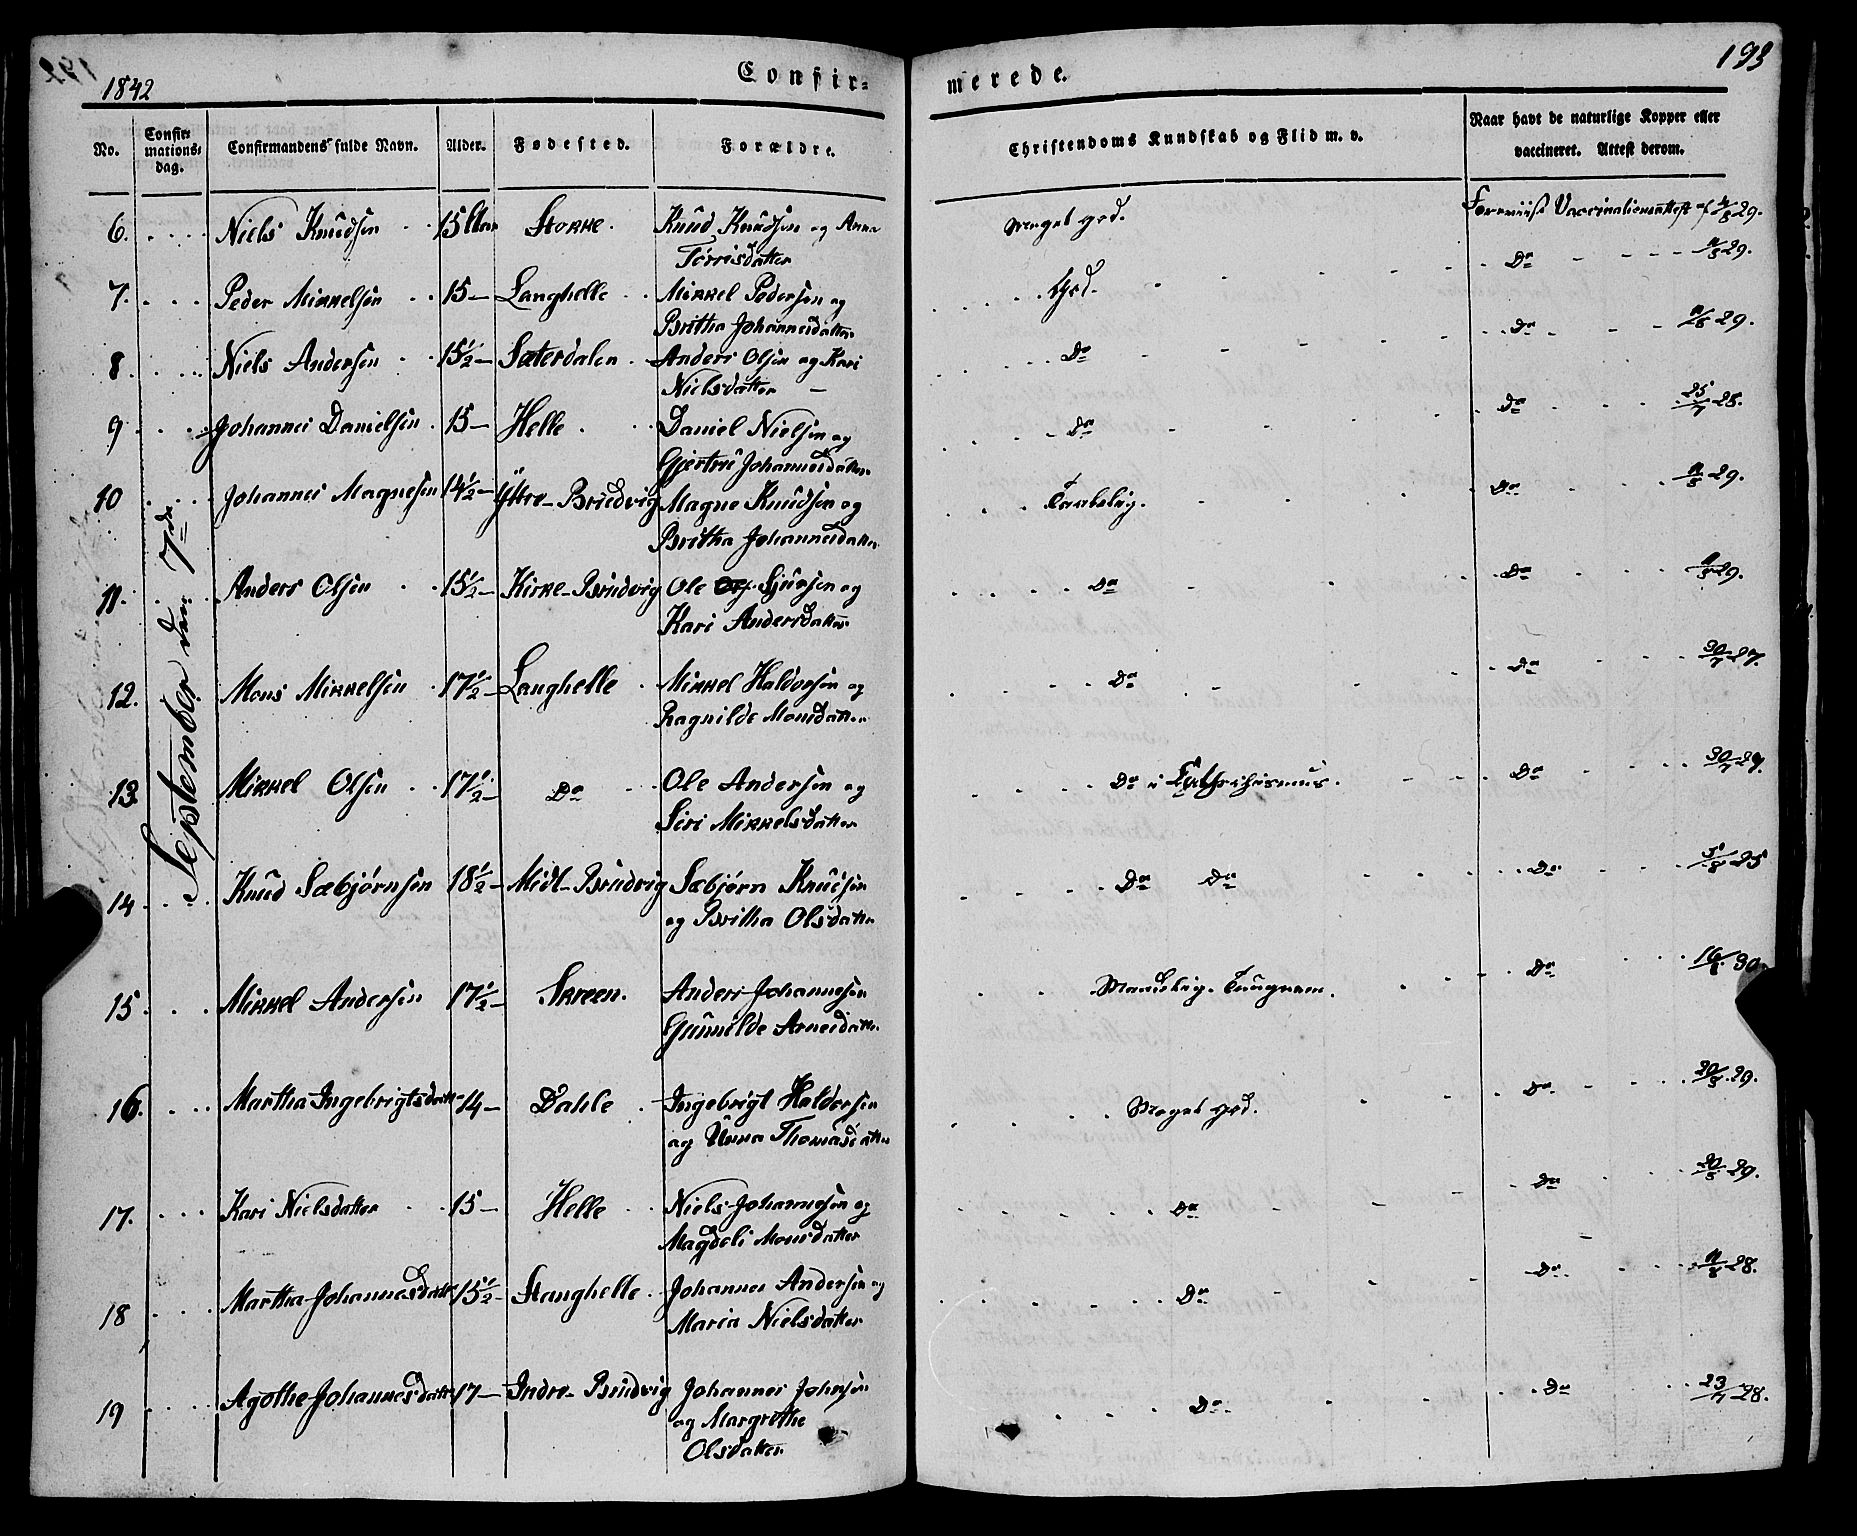 1842 Confir= merede. 193
No. Confir=mations=dag. Confirmandens fulde Navn. Alder. Fødested. Forældre. Christendoms Kundskab og Flid m. v. Naar havt de naturlige Kopper eller vaccineret. Attest derom.
September den 7de
6. Niels Knudsen 15 Storke. Knud Knudsen og Anna Meget god. Foreviist Vaccinationsattest af 4/8 29.
Torrisdatter
7. Peder Mikkelsen 15 Langhelle Mikkel Pedersen og God. Do 11/8 29.
Britha Johannesdatter
8. Niels Andersen 15½ Sæterdalen Anders Olsen og Kari Do Do 11/8 29.
Nielsdatter
9. Johannes Danielsen 15 Helle Daniel Nielsen og Do Do 25/7 28.
Gjertrü Johannesdatter
10 Johannes Magnesen 14½ Yttre-Brudvig Magne Knudsen og Do 11/8 29.
Britha Johannesdatter
11. Anders Olsen 15½ Kirke-Brudvig Ole Sjursen og Do Do 29.
Kari Andersdatter
12. Mons Mikkelsen 17½ Langhelle Mikkel Haldorsen og Do Do 30/7 27.
Ragnilde Monsdatter
13. Mikkel Olsen 17½ Do Ole Andersen og Do i Do 30/7 29.
Siri Mikkelsdatter
14 Knud Sæbjørnsen 18½ Midt-Brudvig Sæbjørn Knudsen Do Do Do 5/8 25
og Britha Olsdatter
15. Mikkel Andersen 17½ Skreen. Anders Johannesen Do 16/8 30.
Gunnilde Arnesdatter
16. Martha Ingebrigtsdatter 14 Dahle Ingebrigt Haldorsen Meget god. Do 20/8 29.
og Anna Thomasdatter
17. Kari Nielsdatter 15 Helle Niels Johannesen og Do Do 20/8 29.
Magdeli Monsdatter
18 Martha Johannesdatter 15½ Stanghelle Johannes Andersen og Do Do 11/8 28.
Maria Nielsdatter
19 Agothe Johannesdatter 17 Indre-Brudvig Johannes Johnsen Do Do 23/7 28.
og Margrethe
Olsdatter